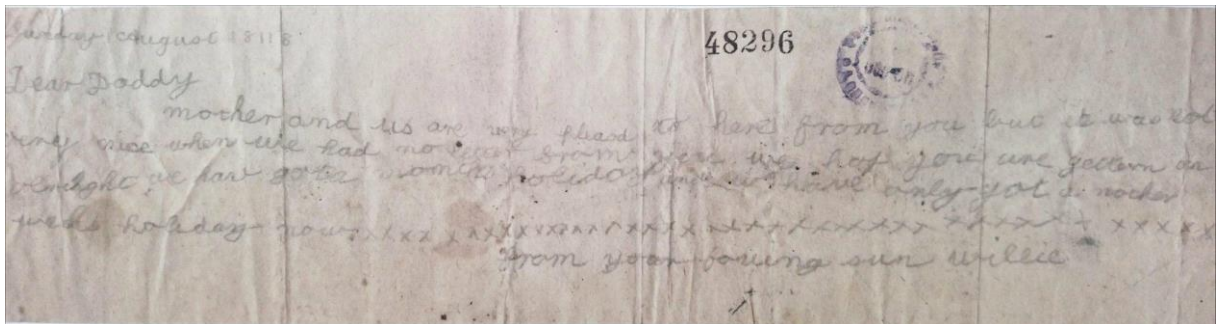 Sunday august 18 1918
48296
Dear Daddy
mother and us are very pleasd to here from you but it was not
very nice when we had no from you we hop you are getten an
allright we hav got a holiday and we have only got a nother
weeks holiday now xxxx xxxxxxxxxxxxxxxxxxxxxxxxxxxxxxxxx
from your loving sun willie